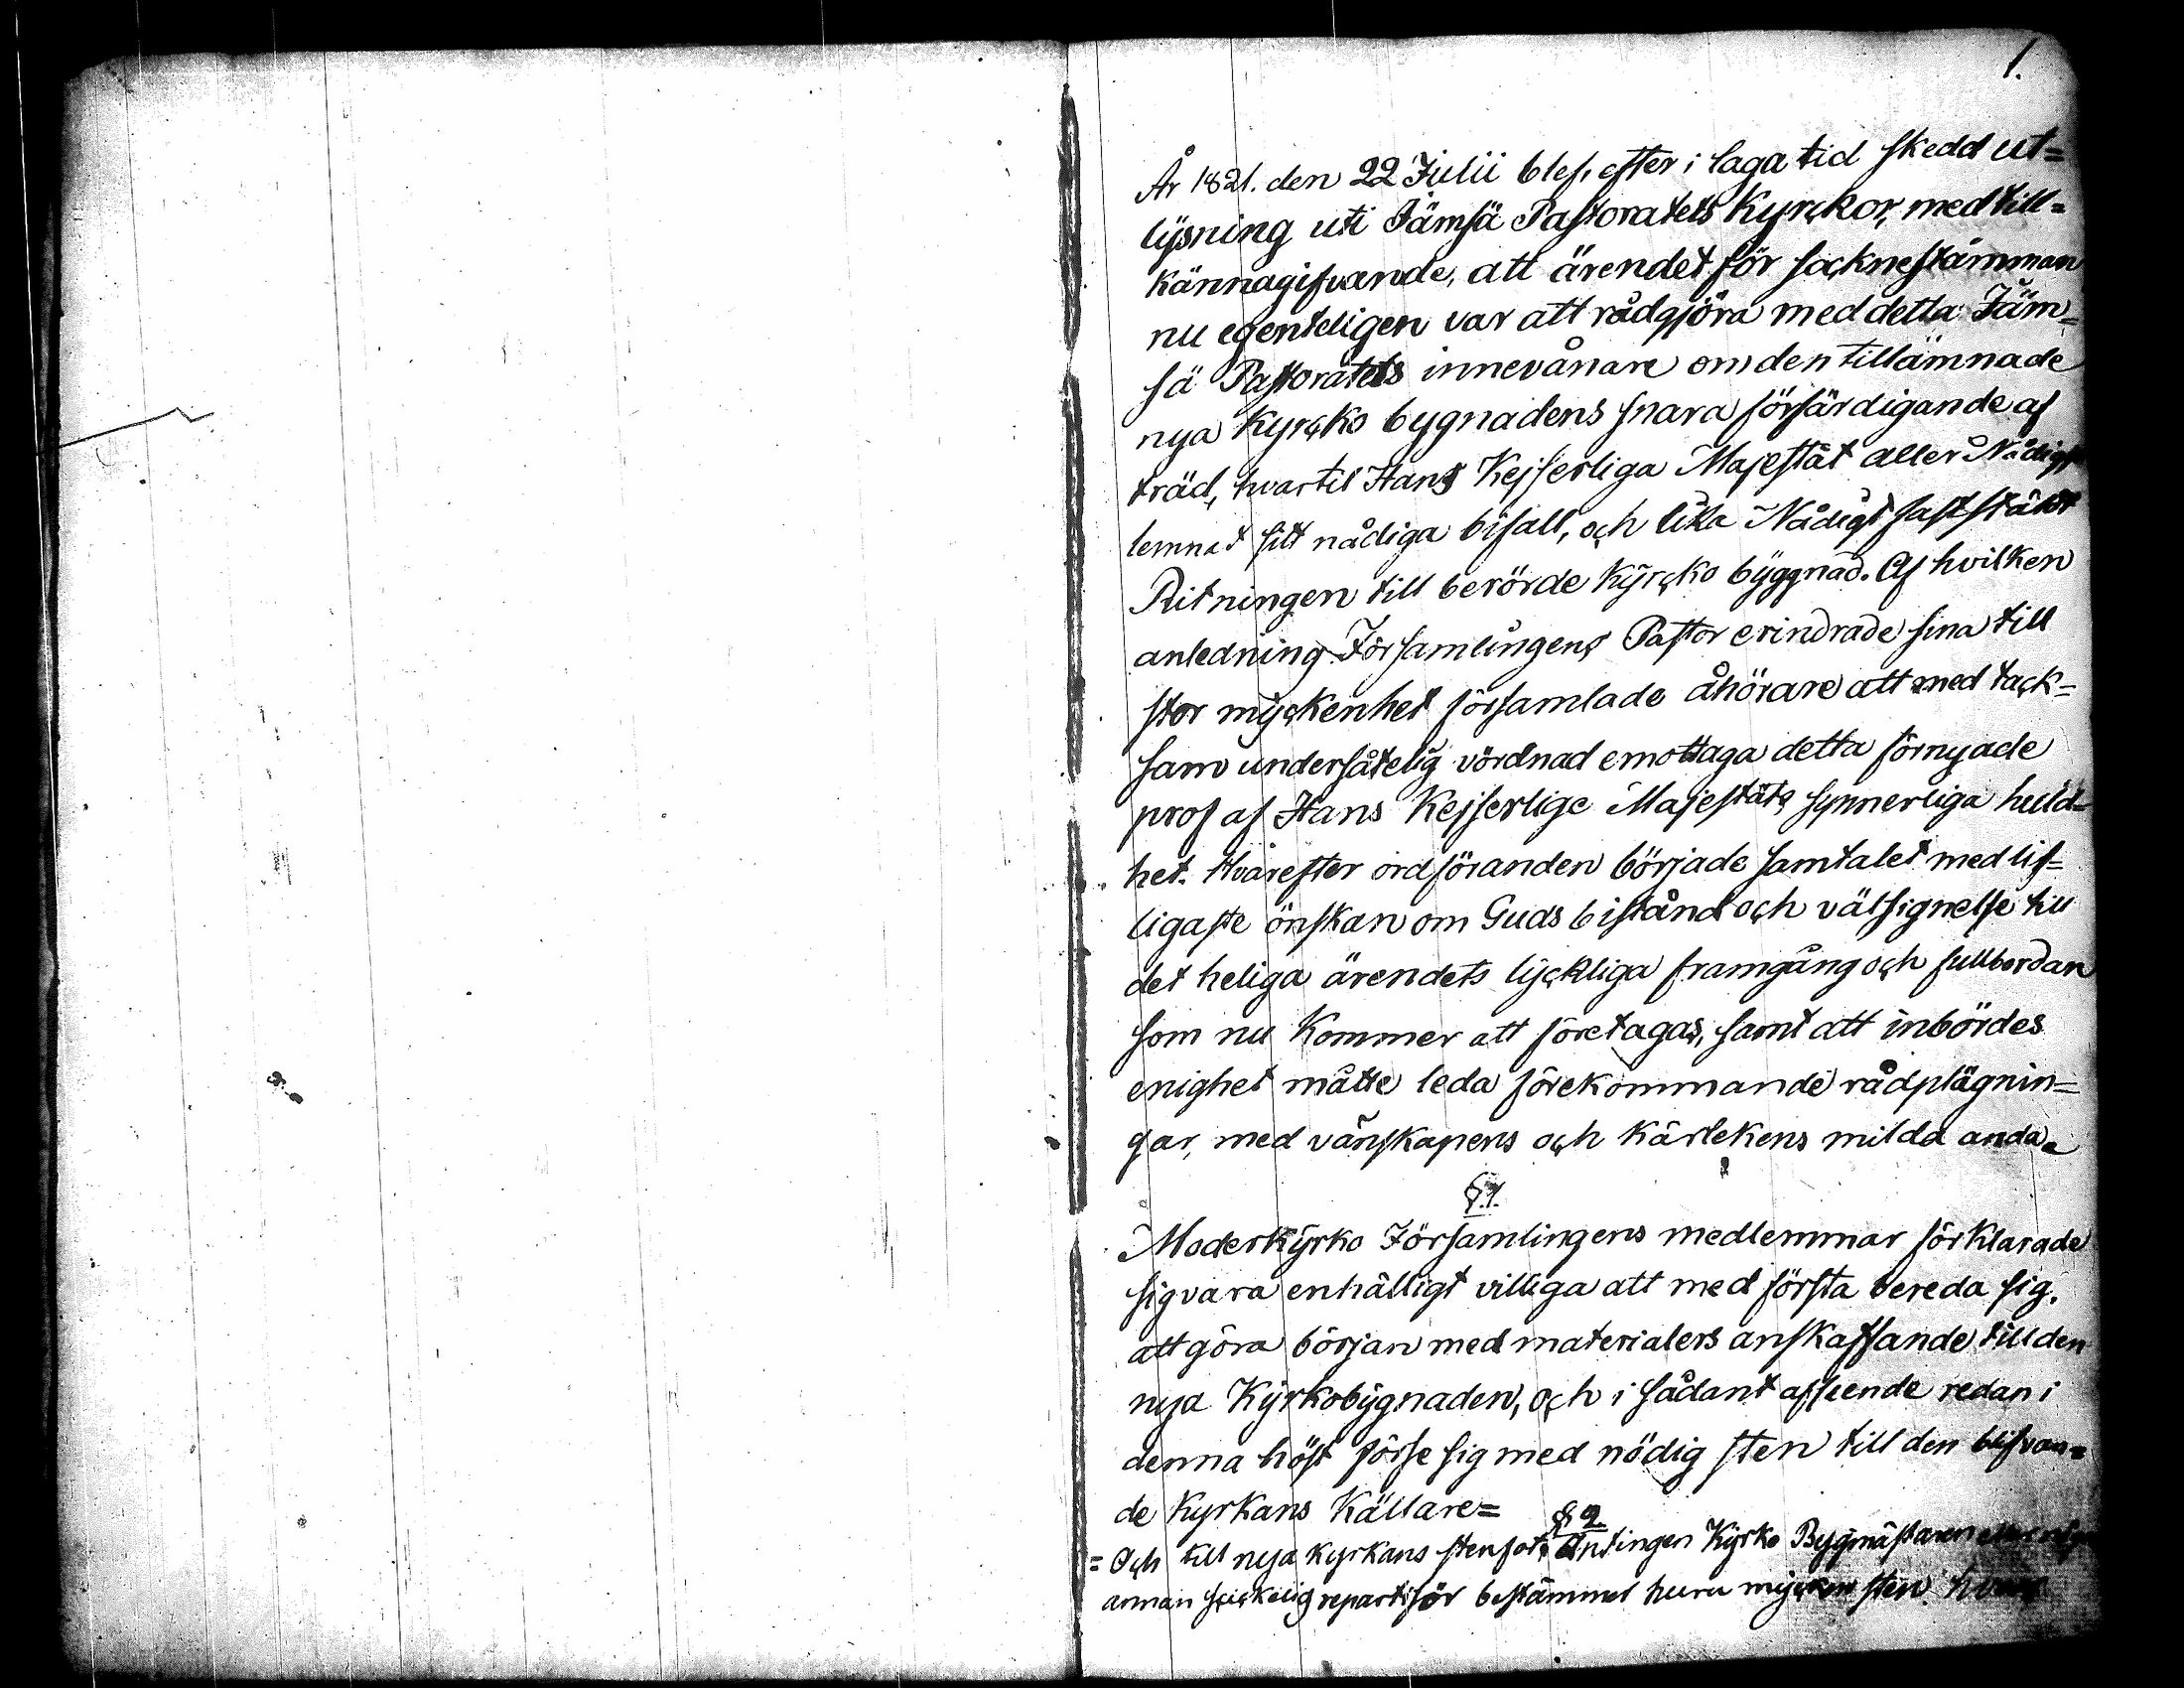 1.
År 1821. den 22 Julii blef, efter i laga tid skedd ut=
lysning uti Jämsä Pastoratets Kyrckor, med till=
kännagifvande, att ärendet för socknestämman
nu egenteligen var att rådgjöra med detta Jäm=
sä Pastoratets innevånare om den tillämnade
nya Kyrcko bygnadens snara förfärdigande af
träd, hvartil Hans Kejserliga Majestät aller Nådigst
lemnat sitt nådiga bifall, och lika Nådigt fastställt
Ritningen till berörde Kyrcko byggnad. Af hvilken
anledning Församlingens Pastor erindrade sina till
stor myckenhet församlade åhörare att med tack=
sam undersåtelig vördnad emottaga detta förnyade
prof af Hans Kejserlige Majestäts synnerliga huld=
het. Hvarefter ordföranden började samtalet med lif=
ligaste önskan om Guds bistånd och välsignelse till
det heliga ärendets lyckliga framgång och fullbordan
som nu Kommer att företagas, samt att inbördes
enighet måtte leda förekommande rådplägnin=
gar, med vänskapens och Kärlekens milda anda.
§.1.
Moderkyrko Församlingens medlemmar förklarade
sig vara enhälligt villiga att med första bereda sig,
att göra början med materialers anskaffande till den
nya Kyrkobygnaden, och i sådant afseende redan i
denna höst förse sig med nödig sten till den blifvan=
de Kyrkans Källare=
§ 2.
= Och till nya kyrkans stenfot. Antingen Kyrko Bygmästaren eller någon
annan skickelig repartisör bestämmer huru mycken sten hvar